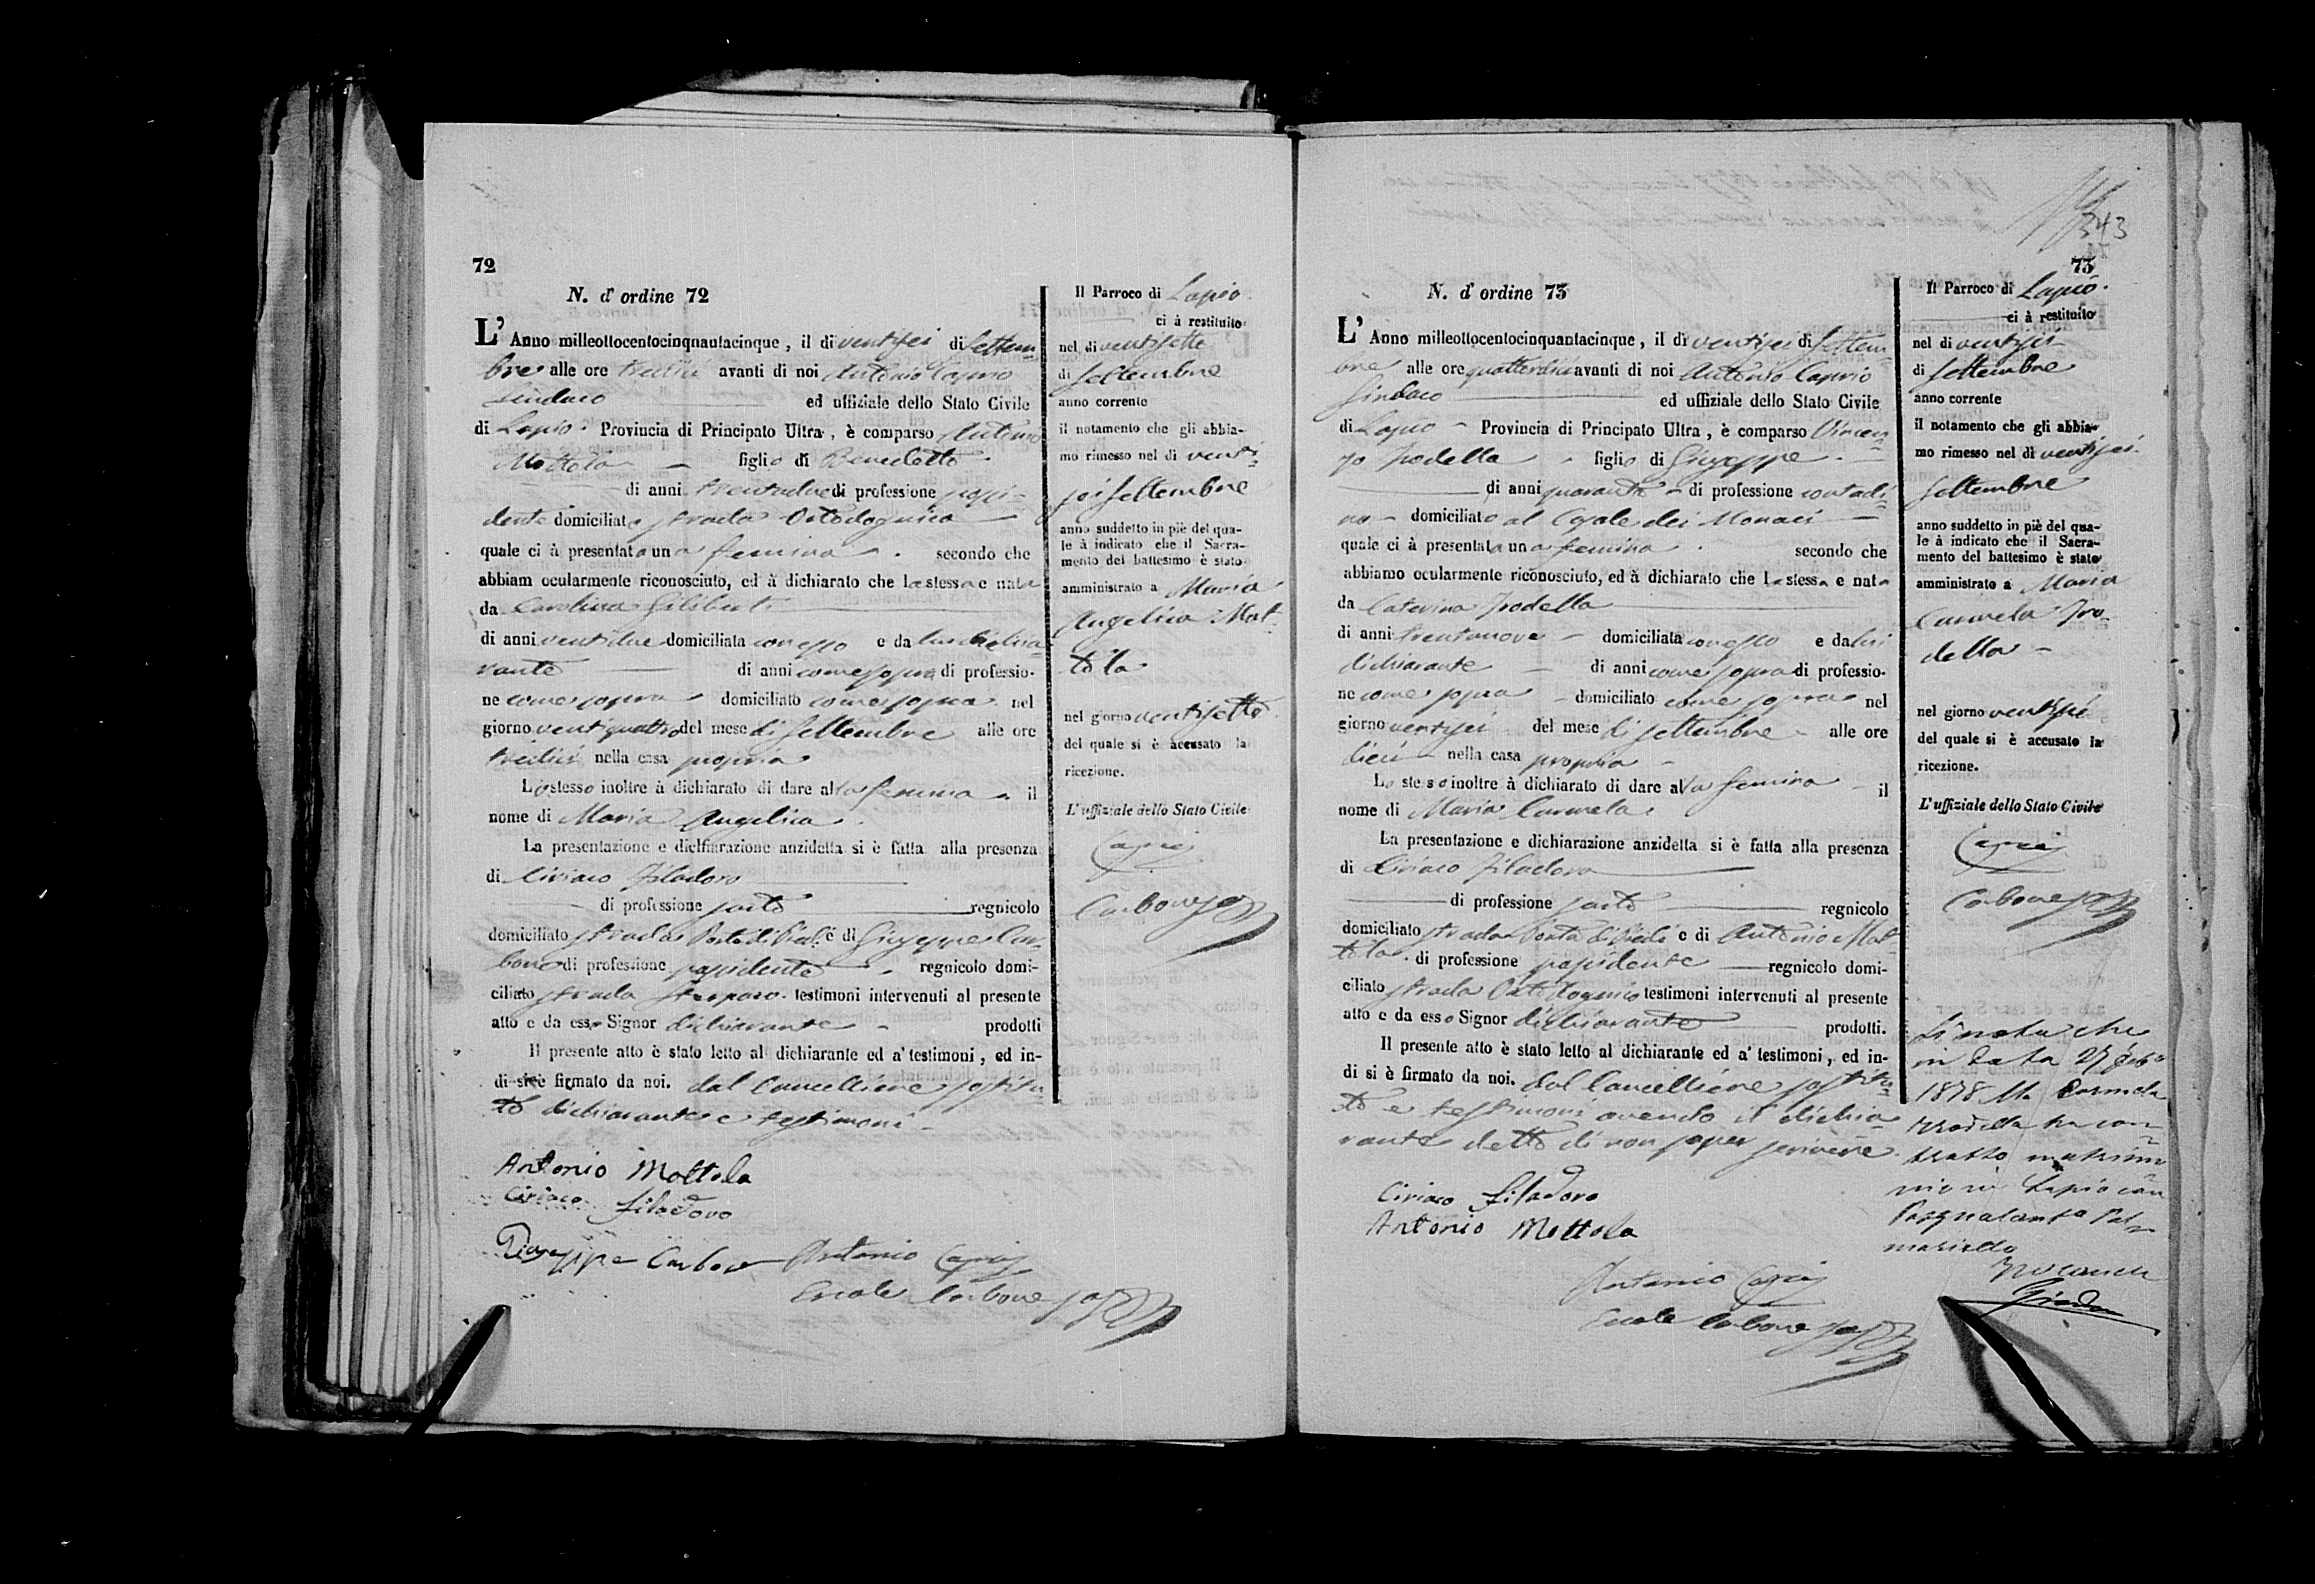 72
N. d' ordine 72
L' Anno milleottocentocinquantacinque, il dì ventisei di Settem-
bre alle ore tredici avanti di noi Antonio Caprio
Sindaco ed uffiziale dello Stato Civile
di Lapio. Provincia di Principato Ultra, è comparso Antonio
Mottola figlio di Benedetto
di anni trentadue di professione possi-
dente domiciliato strada
quale ci à presentata una femina . secondo che
abbiam ocularmente riconosciuto, ed à dichiarato che la stessa e nata
da Carolina Giliberti
di anni ventidue domiciliata con esso e da lui dichia-
rante di anni come sopra di professio-
ne come sopra domiciliato come sopra nel
giorno ventiquattro del mese di Settembre alle ore
tredici nella casa propria
Lo stesso inoltre à dichiarato di dare alla femina il
nome di Maria Angelica
La presentazione e dichiarazione anzidetta si è fatta alla presenza
di Ciriaco Filadoro
di professione sarto regnicolo
domiciliato strada Porta di e di Giuseppe Car-
bone di professione possidente regnicolo domi-
ciliato strada testimoni intervenuti al presente
atto e da esso Signor dichiarante prodotti
Il presente atto è stato letto al dichiarante ed a' testimoni, ed in-
di si è firmato da noi. dal Cancelliere sostitu-
to dichiarante e testimoni
Antonio Mottola
Ciriaco Filadoro
Giuseppe Carbone Antonio Caprio
Ercole Carbone
Il Parroco di Lapio
ci à restituito
nel dì ventisette
di Settembre
anno corrente
il notamento che gli abbia-
mo rimesso nel dì venti-
sei Settembre
anno suddetto in piè del qua-
le à indicato che il Sacra-
mento del battesimo è stato
amministrato a Maria
Angelica Mot-
tola
nel giorno ventisette
del quale si è accusato la
ricezione.
L' uffiziale dello Stato Civile
Caprio
Carbone
343
73
N. d' ordine 73
L' Anno milleottocentocinquantacinque, il dì ventisei di Settem-
bre alle ore quattordici avanti di noi Antonio Caprio
Sindaco ed uffiziale dello Stato Civile
di Lapio Provincia di Principato Ultra, è comparso Vincen-
zo Trodella figlio di Giuseppe
di anni quaranta di professione contadi-
no domiciliato al Casale dei Monaci
quale ci à presentata una femina . secondo che
abbiamo ocularmente riconosciuto, ed à dichiarato che la stessa e nata
da Caterina Trodella
di anni trentanove domiciliata con esso e da lui
dichiarante di anni come sopra di professio-
ne come sopra domiciliato come sopra nel
giorno ventisei del mese di Settembre alle ore
dieci nella casa propria
Lo stesso inoltre à dichiarato di dare alla femina il
nome di Maria Carmela
La presentazione e dichiarazione anzidetta si è fatta alla presenza
di Ciriaco Filadoro
di professione sarto regnicolo
domiciliato strada Porta di e di Antonio Mot-
tola di professione possidente regnicolo domi-
ciliato strada testimoni intervenuti al presente
atto e da esso Signor dichiarante prodotti.
Il presente atto è stato letto al dichiarante ed a' testimoni, ed in-
di si è firmato da noi. dal Cancelliere sostitu-
to e testimoni avendo il dichia-
rante detto di non saper scrivere
Ciriaco Filadoro
Antonio Mottola
Antonio Caprio
Ercole Carbone
Il Parroco di Lapio.
ci à restituito
nel dì ventisei
di Settembre
anno corrente
il notamento che gli abbia-
mo rimesso nel dì ventisei
Settembre
anno suddetto in piè del qua-
le à indicato che il Sacra-
mento del battesimo è stato
amministrato a Maria
Carmela Tro-
della
nel giorno ventisei
del quale si è accusato la
ricezione.
L' uffiziale dello Stato Civile
Caprio
Carbone
Si nota che
in data 27
1878 Ma Carmela
Trodella ha con-
tratto matrimo-
nio in Lapio con